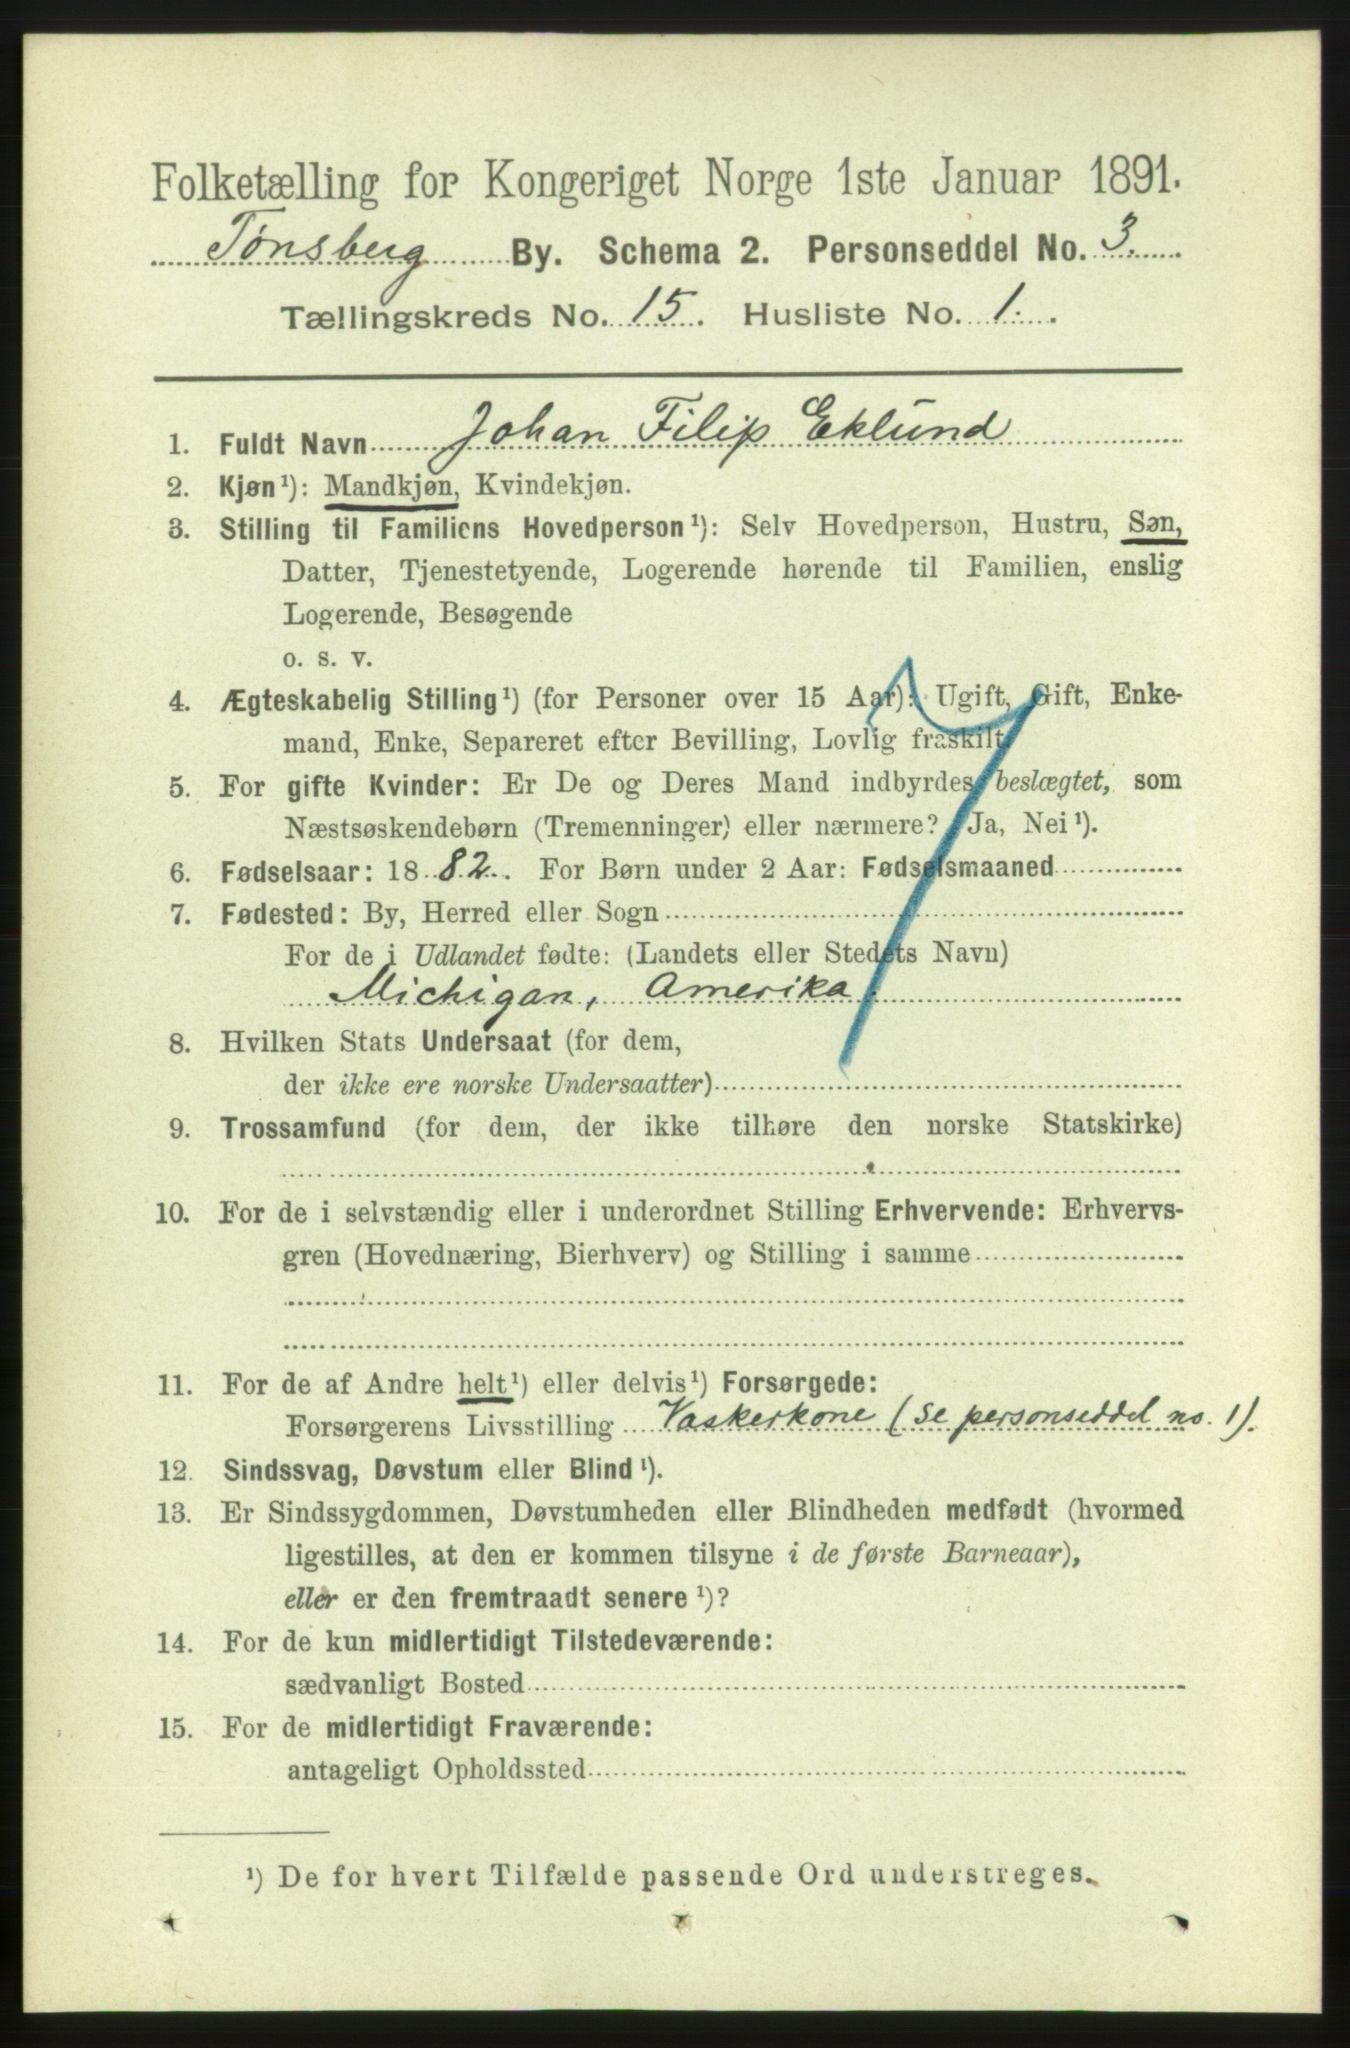 Folketælling for Kongeriget Norge 1ste Januar 1891.
Tønsberg By. Schema 2. Personseddel No. 3.
Tællingskreds No. 15. Husliste No. 1.
1. Fuldt Navn Johan Filip Eklund
2. Kjøn¹): Mandkjøn, Kvindekjøn.
3. Stilling til Familiens Hovedperson¹): Selv Hovedperson, Hustru, Søn,
Datter, Tjenestetyende, Logerende hørende til Familien, enslig
Logerende, Besøgende
o. s. v.
4. Ægteskabelig Stilling¹) (for Personer over 15 Aar): Ugift, Gift, Enke-
mand, Enke, Separeret efter Bevilling, Lovlig fraskilt.
5. For gifte Kvinder: Er De og Deres Mand indbyrdes beslægtet, som
Næstsøskendebørn (Tremenninger) eller nærmere? Ja, Nei¹).
6. Fødselsaar: 1882. For Børn under 2 Aar: Fødselsmaaned
7. Fødested: By, Herred eller Sogn
For de i Udlandet fødte: (Landets eller Stedets Navn)
Michigan, Amerika.
8. Hvilken Stats Undersaat (for dem,
der ikke ere norske Undersaatter)
9. Trossamfund (for dem, der ikke tilhøre den norske Statskirke)
10. For de i selvstændig eller i underordnet Stilling Erhvervende: Erhvervs-
gren (Hovednæring, Bierhverv) og Stilling i samme
11. For de af Andre helt¹) eller delvis¹) Forsørgede:
Forsørgerens Livsstilling Vaskerkone (se personseddel no. 1).
12. Sindssvag, Døvstum eller Blind¹).
13. Er Sindssygdommen, Døvstumheden eller Blindheden medfødt (hvormed
ligestilles, at den er kommen tilsyne i de første Barneaar),
eller er den fremtraadt senere¹)?
14. For de kun midlertidigt Tilstedeværende:
sædvanligt Bosted
15. For de midlertidigt Fraværende:
antageligt Opholdssted
¹) De for hvert Tilfælde passende Ord understreges.